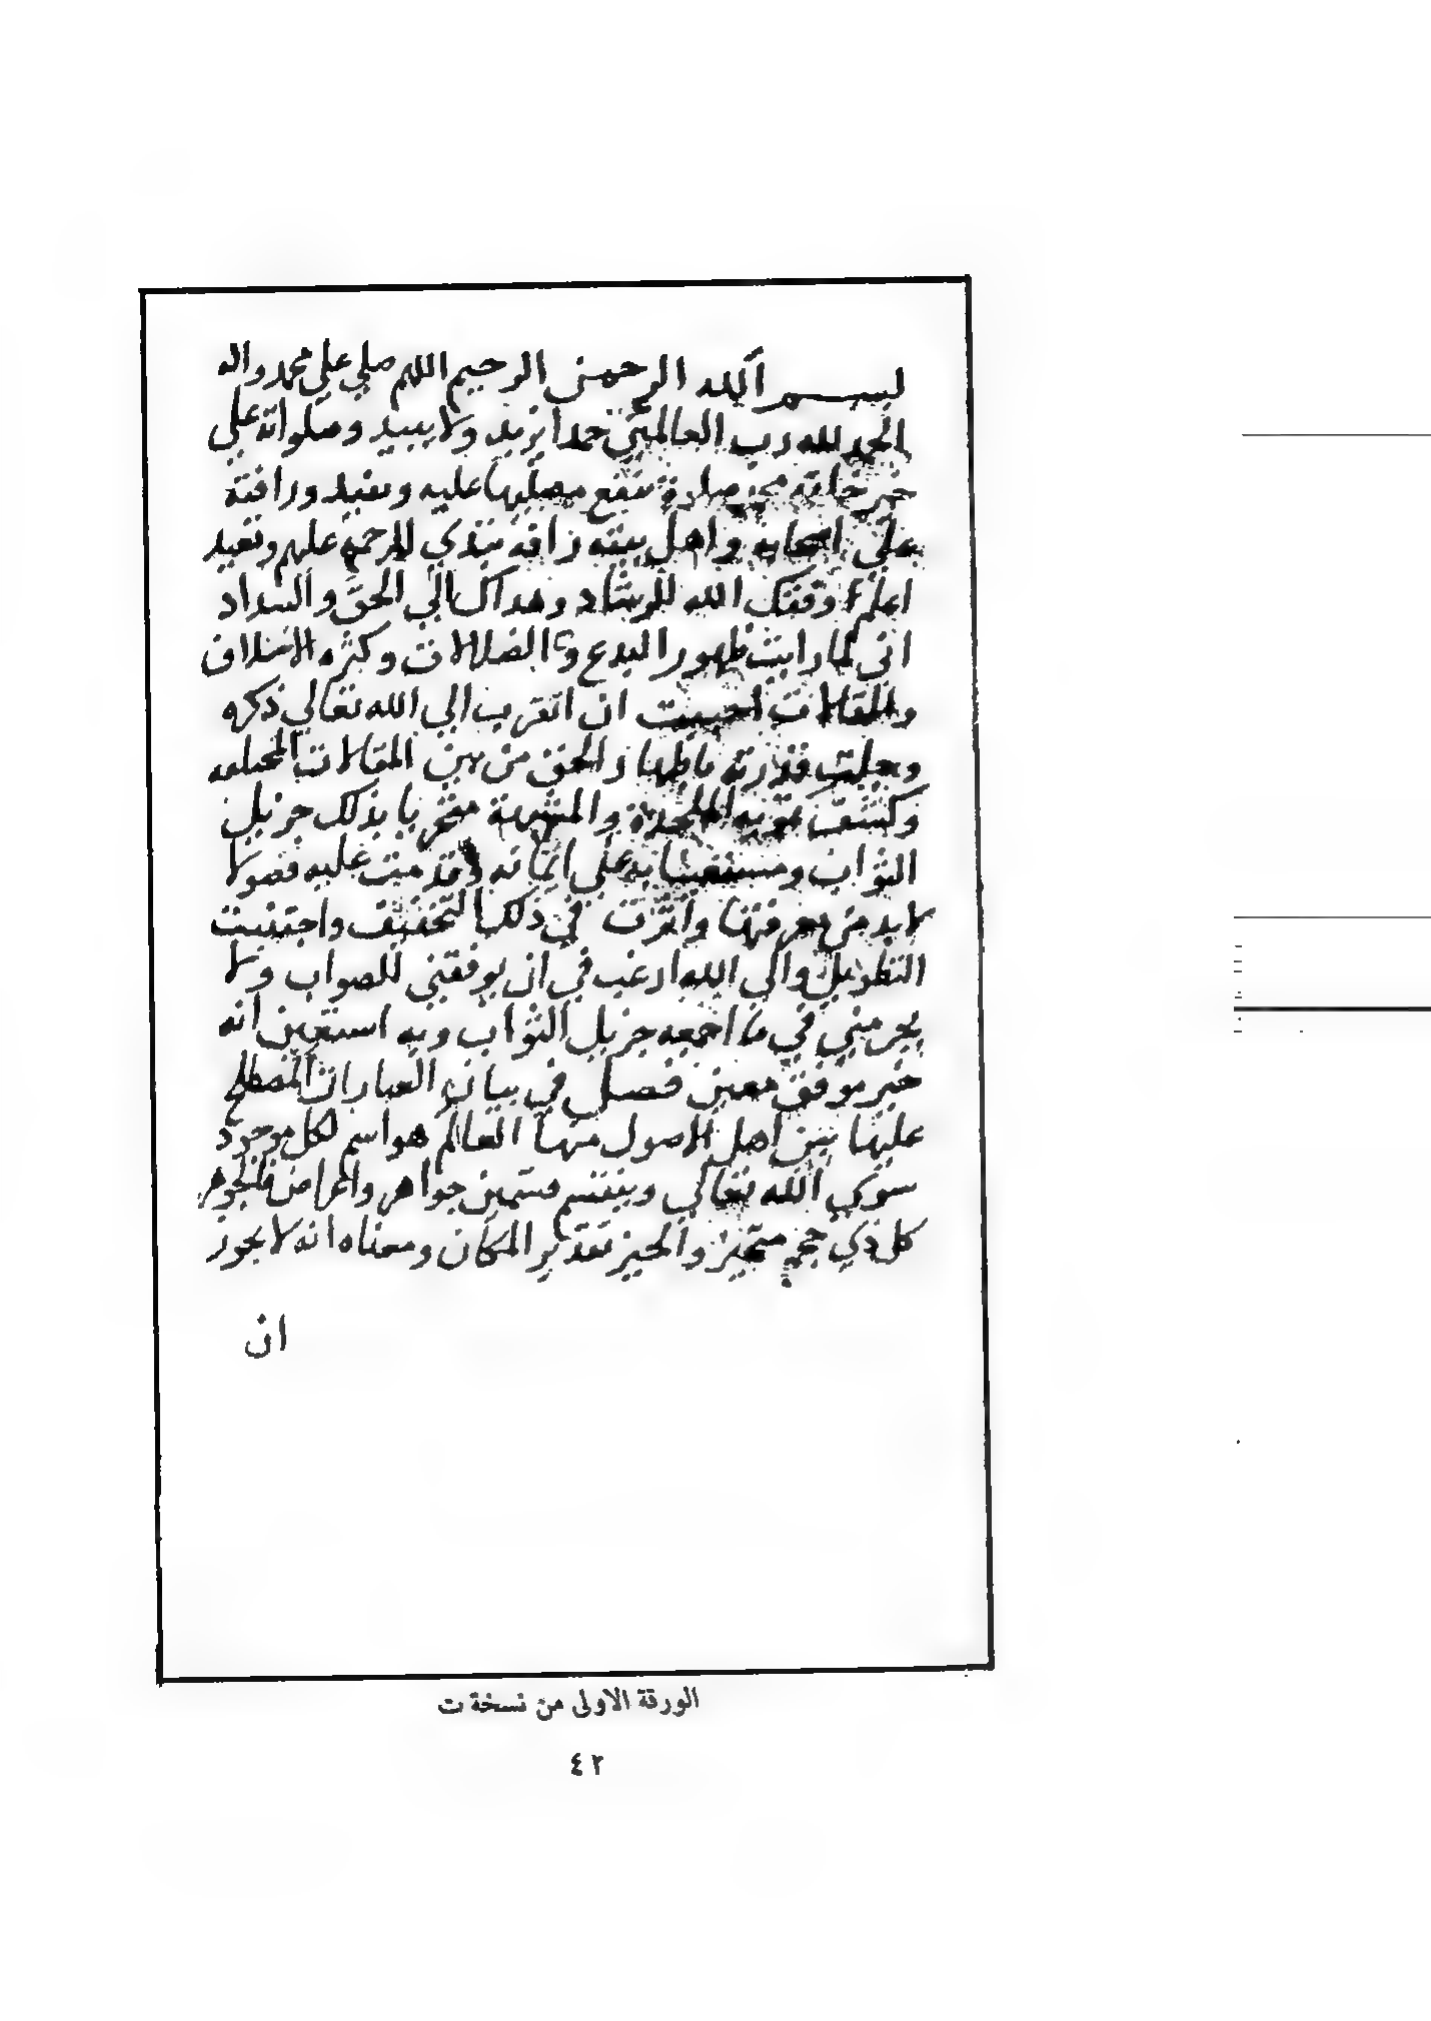 بسم الله الرحمن الرحيم اللهم صلي علي محمد واله
الحمد لله رب العالمين حمدا يزيد ولا يبيد وصلواته علي
خير خلقه محمد صلاة تنفع مصليها عليه وتفيد ورافته
علي اصحابه واهل بيته رافة تبدي الرحمة عليهم وتعيد
اعلم وفقك الله للرشاد وهداك الي الحق والسداد
اني لما رايت ظهور البدع والضلالات وكثره الاختلاف
والمقالات احببت ان اتقرب الي الله تعالي ذكره
وجلت قدرته باظهار الحق من بين المقالات المختلفه
وكشف تمويه الملحدة والمشبهة متحريا بذلك جزيل
الثواب ومستعينا به علي اتمامه وقدمت عليه فصولا
لا بد من معرفتها واثرت في ذلك التخفيف واجتنبت
التطويل والي الله ارغب في ان يوفقني للصواب ولا
يحرمني في ما اجمعه جزيل الثواب وبه استعين انه
خير موفق معين فصل في بيان العبارات المصطلح
عليها بين اهل الاصول منها العالم هو اسم لكل موجود
سوي الله تعالي وينقسم قسمين جواهر واعراض فالجوهر
كل ذي حجم متحيز والحيز تقدير المكان ومعناه انه لا يجوز
ان
الورقة الاولى من نسخة ت
٤٢